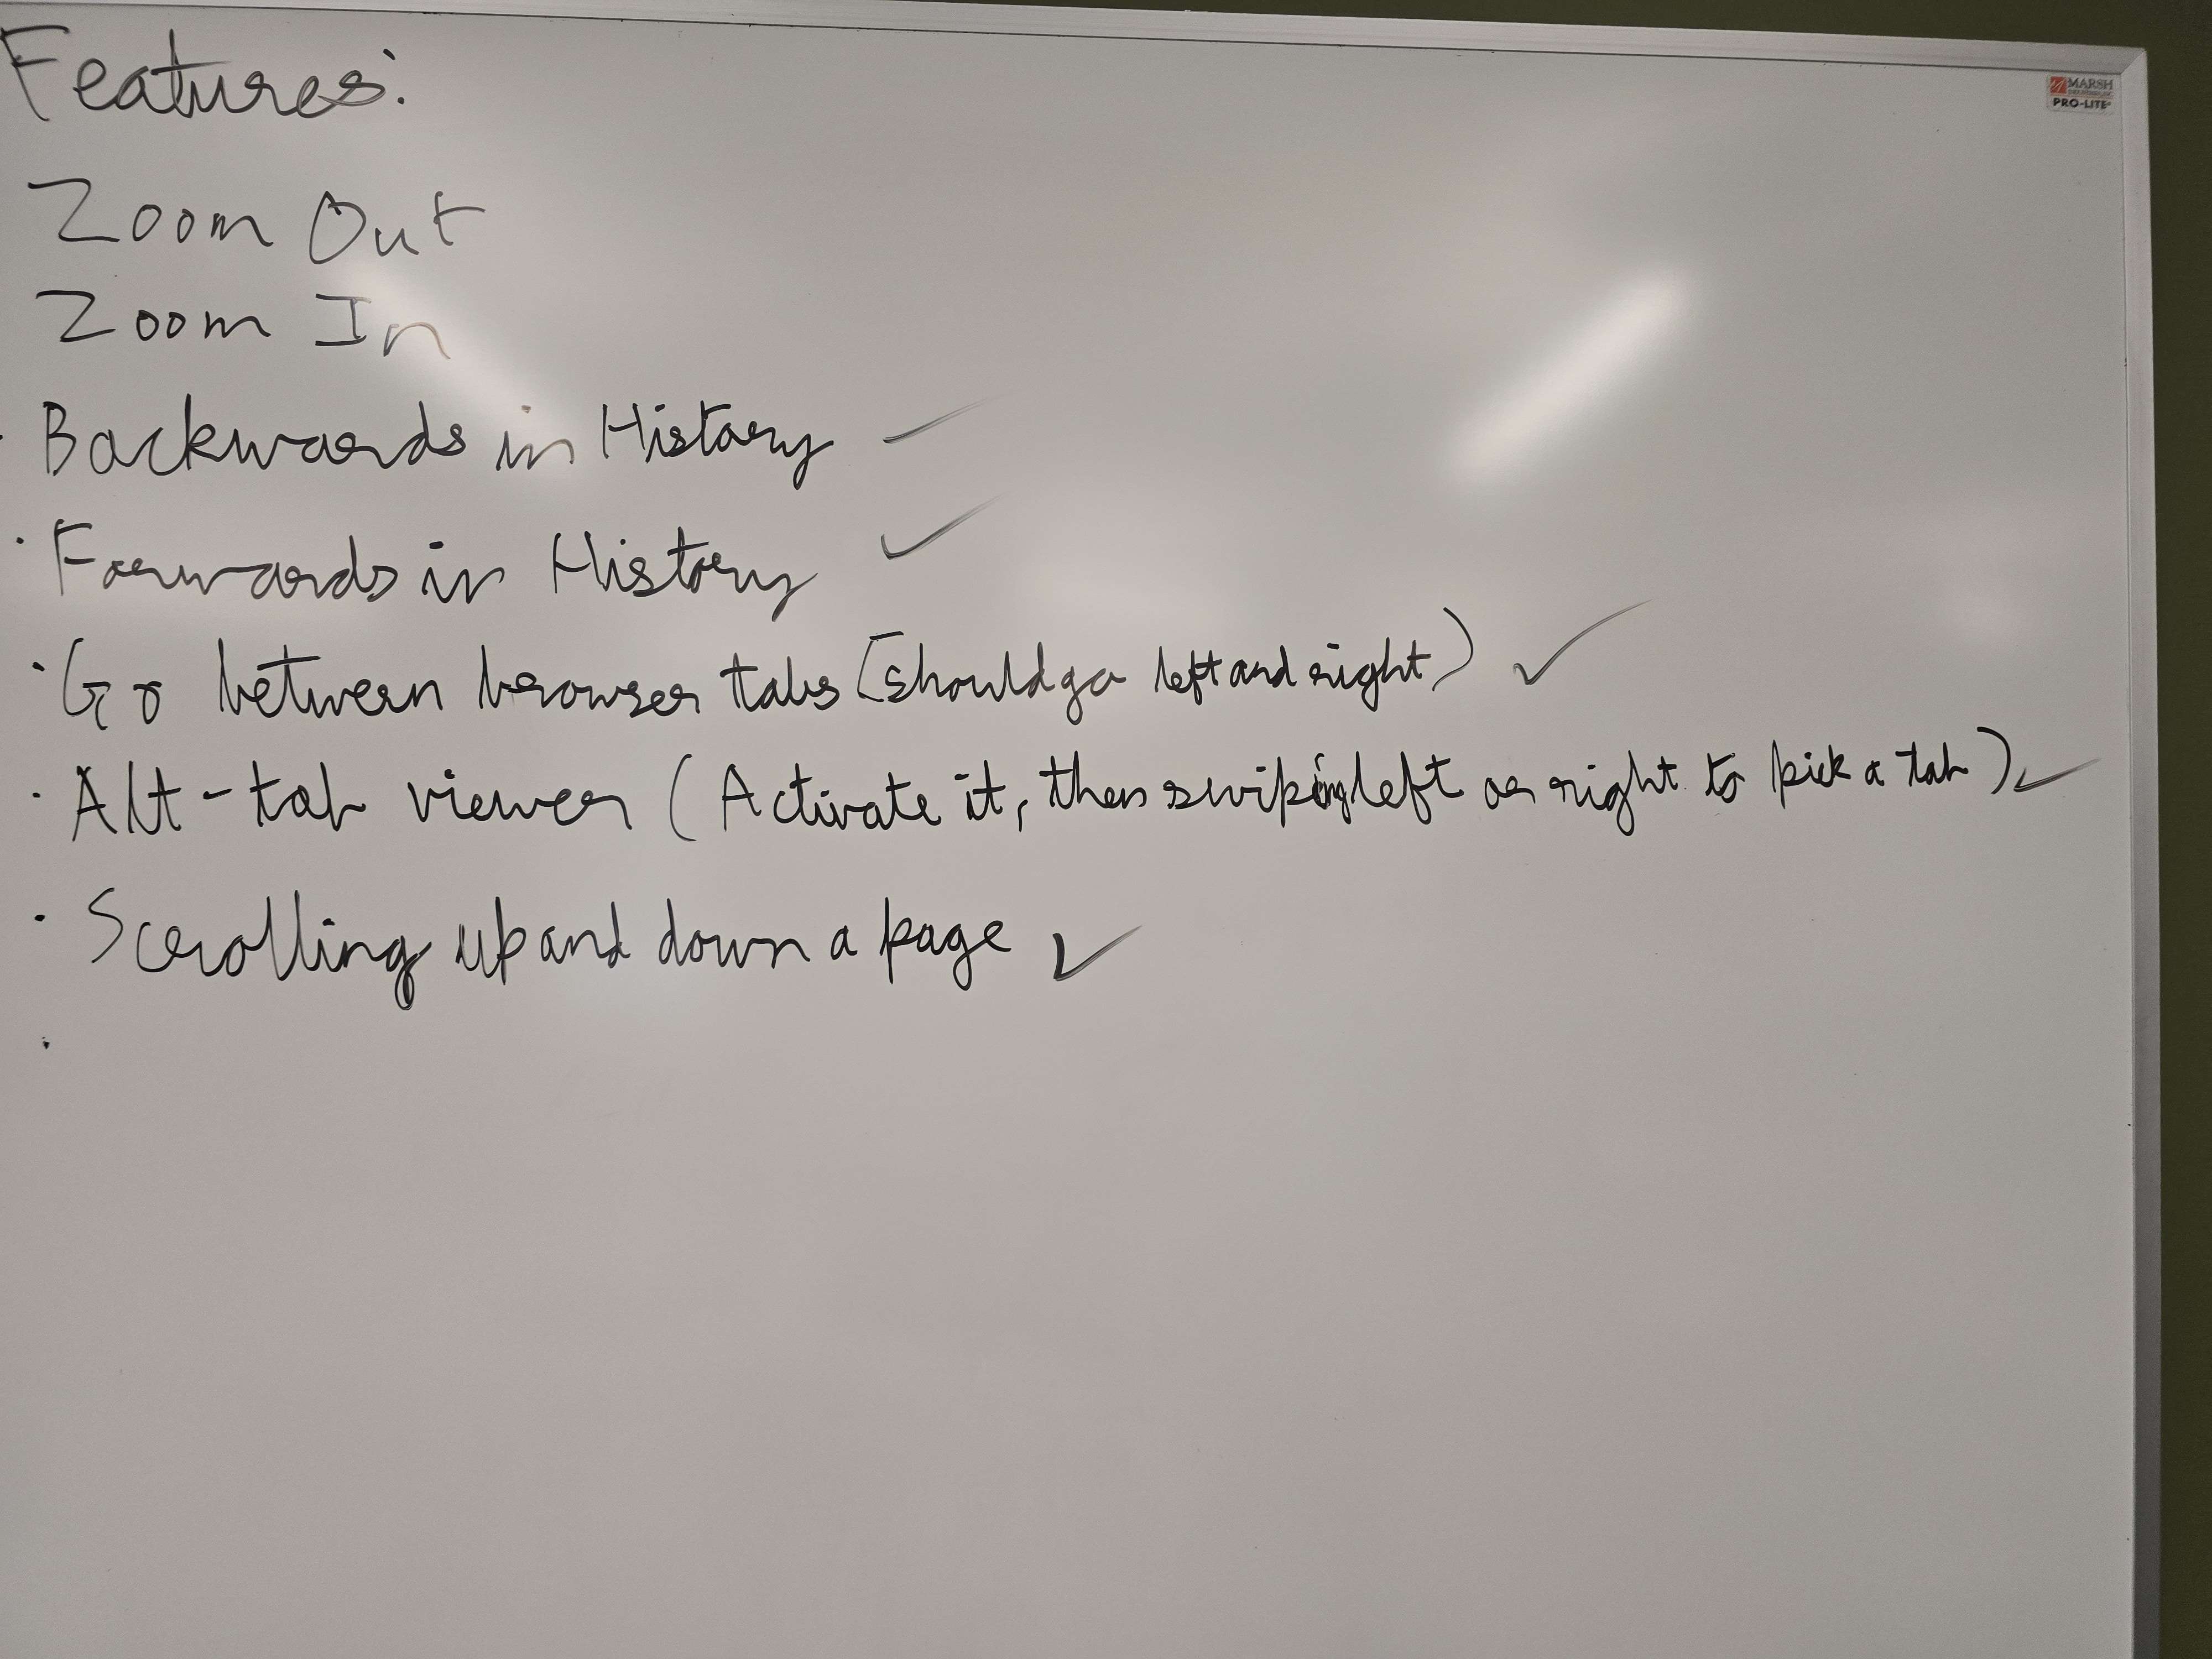 Features:
MARSH
PRO-LITE
Zoom Out
Zoom In
· Backwards in History –
· Forwards in History ✓
· Go between browser tabs (should go left and right) ✓
· Alt-tab viewer (Activate it, then swiping left or right to pick a tab) ✓
· Scrolling up and down a page ✓
·